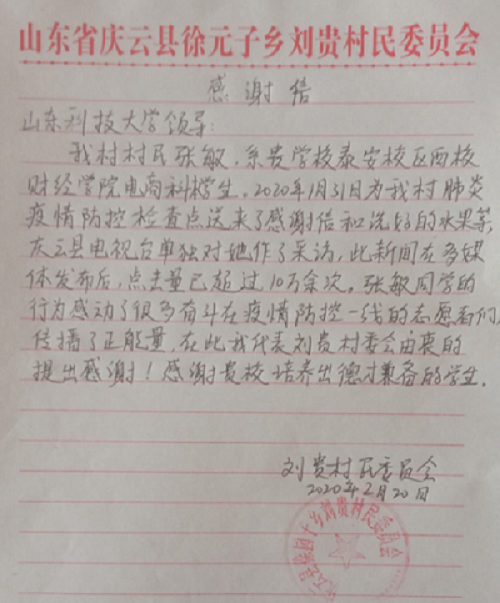 山东省庆云县徐元子乡刘贵村民委员会
感谢信
山东科技大学领导:
我村村民张敏,系贵学校泰安校区西校
财经学院电商科学生,2020年1月31日为我村肺炎
疫情防控检查点送来了感谢信和洗好的水果等,
庆云县电视台单独对她作了采访,此新闻在多媒
体发布后,点击量已超过10万余次。张敏同学的
行为感动了很多奋斗在疫情防控一线的志愿者们,
传播了正能量,在此我代表刘贵村委会由衷的
提出感谢!感谢贵校培养出德才兼备的学生.
刘贵村民委员会
2020年2月20日
庆云县徐园子乡刘贵村民委员会